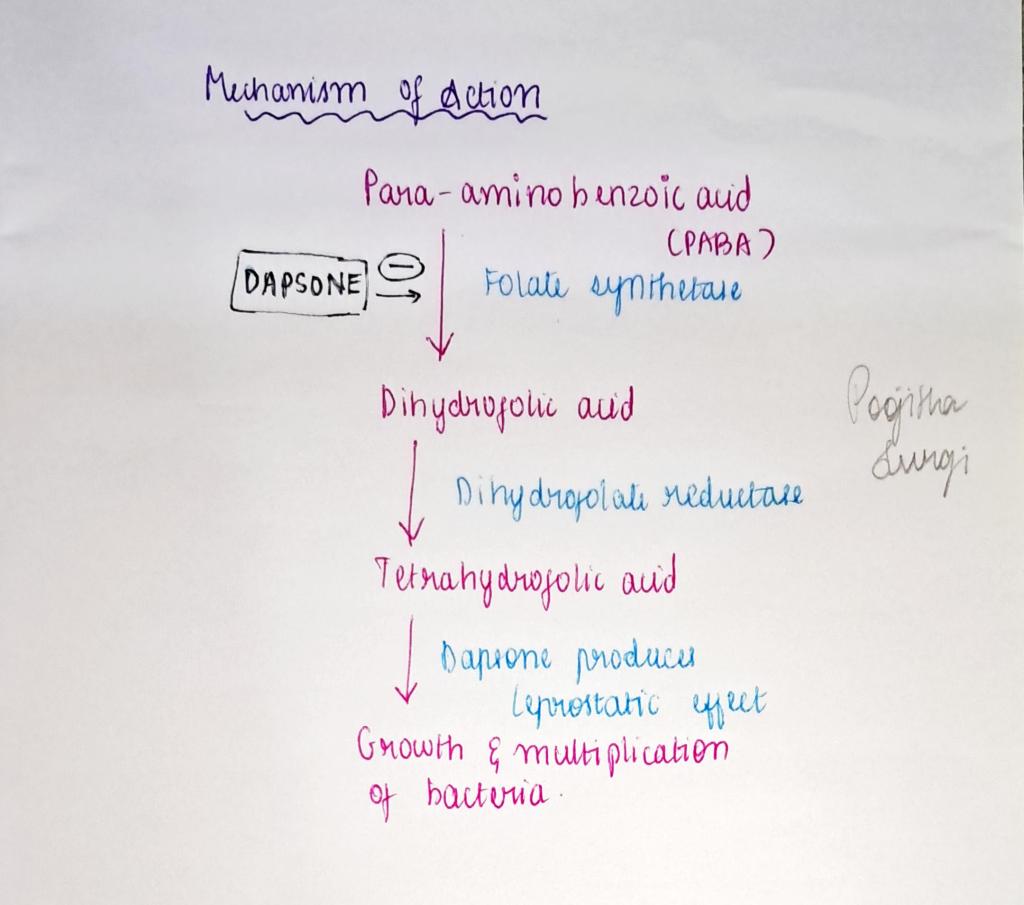 Mechanism of Action
Para-aminobenzoic acid
(PABA)
DAPSONE
Folate synthetase
Dihydrofolic acid
Dihydrofolate reductase
Tetrahydrofolic acid
Dapsone produces
leprostatic effect
Growth & multiplication
of bacteria.